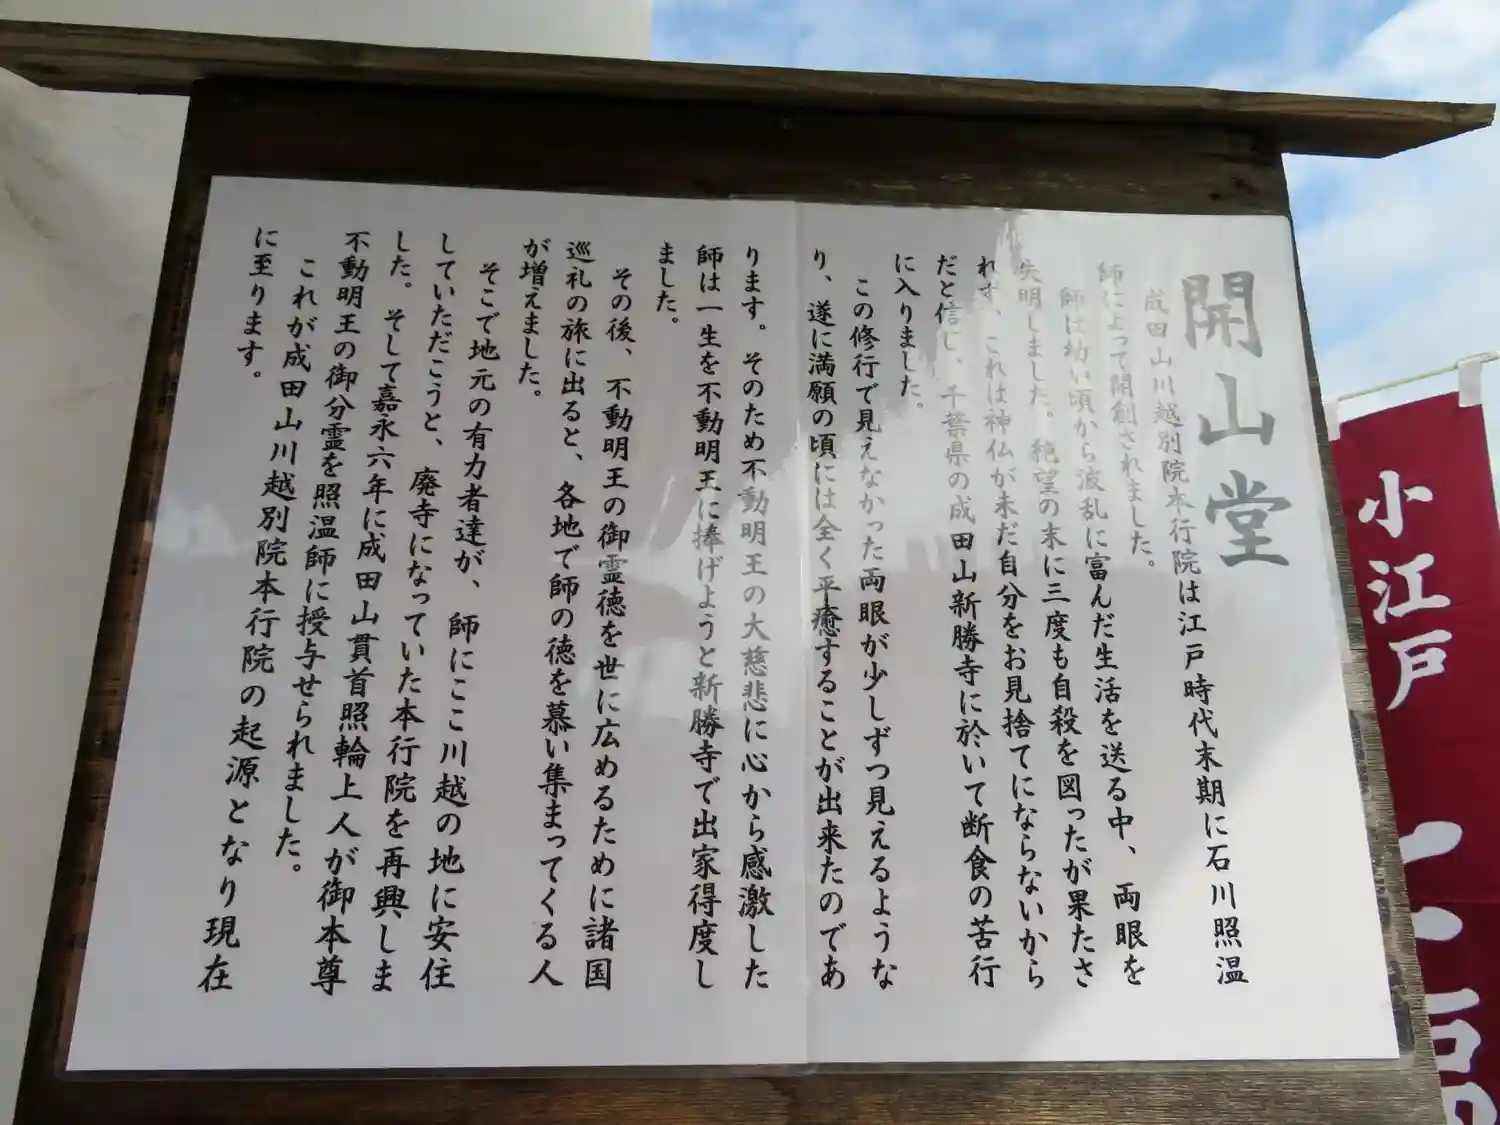 開山堂
成田山川越別院本行院は江戸時代末期に石川照温
師によって開創されました。
師は幼い頃から波乱に富んだ生活を送る中、両眼を
失明しました。絶望の末に三度も自殺を図ったが果たさ
れず、これは神仏が未だ自分をお見捨てにならないから
だと信じ、千葉県の成田山新勝寺に於いて断食の苦行
に入りました。
この修行で見えなかった両眼が少しずつ見えるような
り、遂に満願の頃には全く平癒することが出来たのであ
ります。そのため不動明王の大慈悲に心から感激した
師は一生を不動明王に捧げようと新勝寺で出家得度し
ました。
その後、不動明王の御霊徳を世に広めるために諸国
巡礼の旅に出ると、各地で師の徳を慕い集まってくる人
が増えました。
そこで地元の有力者達が、師にここ川越の地に安住
していただこうと、廃寺になっていた本行院を再興しま
した。そして嘉永六年に成田山貫首照輪上人が御本尊
不動明王の御分霊を照温師に授与せられました。
これが成田山川越別院本行院の起源となり現在
に至ります。
小江戸